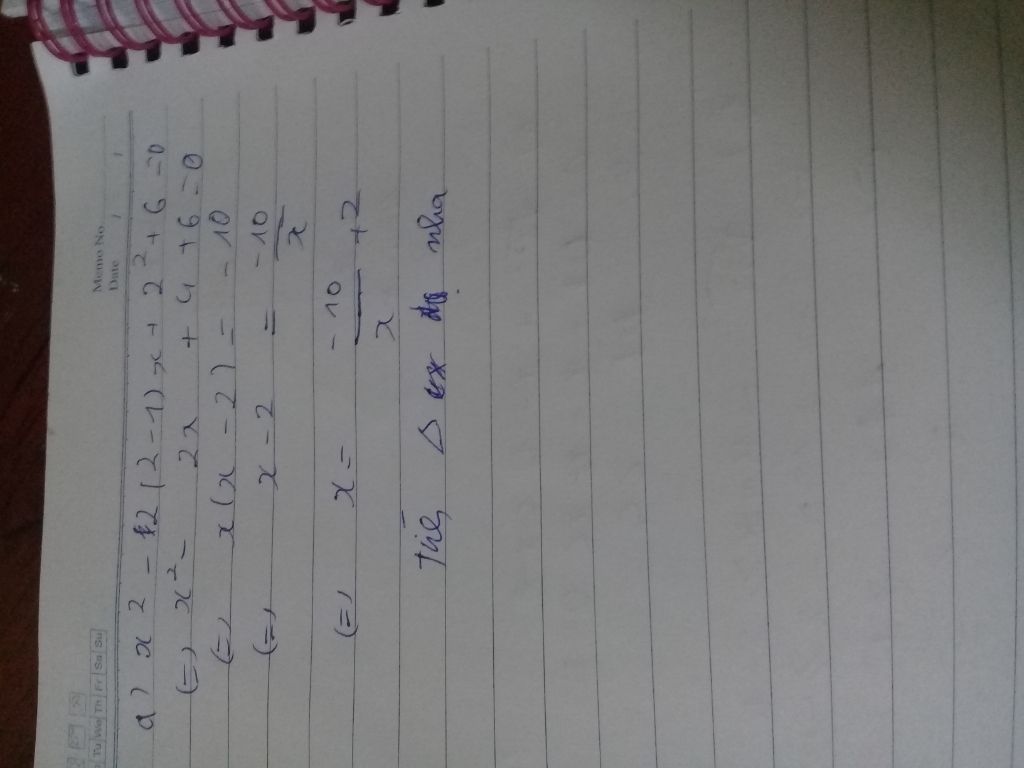 Memo No.
Date / /
Tu We Th Fr Sa Su
a) x2 - 2(2-1)x + 2² + 6 = 0
(=) x² - 2x + 4 + 6 = 0
(=) x(x-2) = -10
(=) x-2 = -10/x
(=) x = -10/x + 2
Δ nha